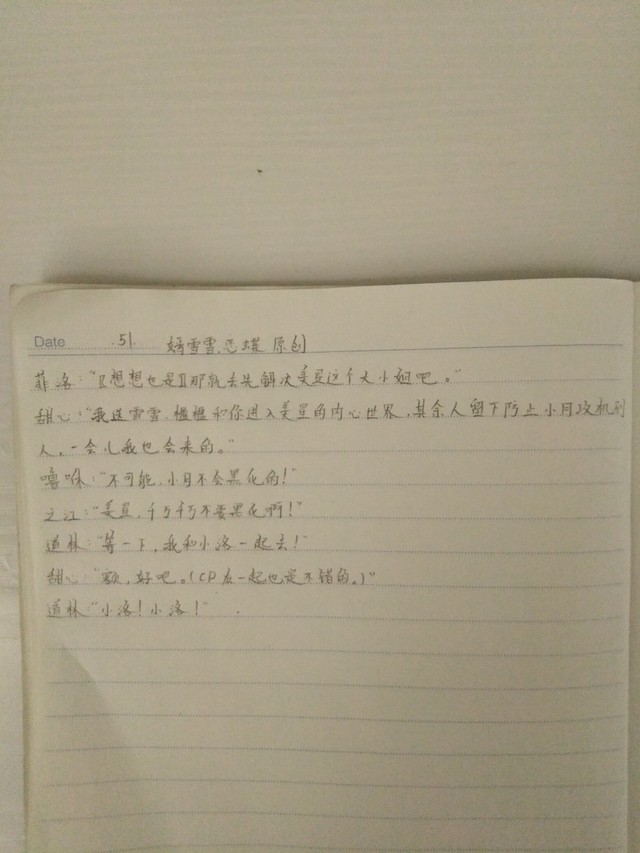 Date .51. 雪雪. 原创
菲洛:“[想想也是]那就去先解决美星这个大小姐吧。”
甜心:“我送雪雪.楹楹和你进入美星的内心世界,其余人留下防止小月攻机到
人,一会儿我也会来的。”
噜咪:“不可能,小月不会黑化的!”
之江:“美星,千万千万不要黑化啊!”
道林:“等一下,我和小洛一起去!”
甜心:“额,好吧。(CP在一起也是不错的。)”
道林:“小洛!小洛!”